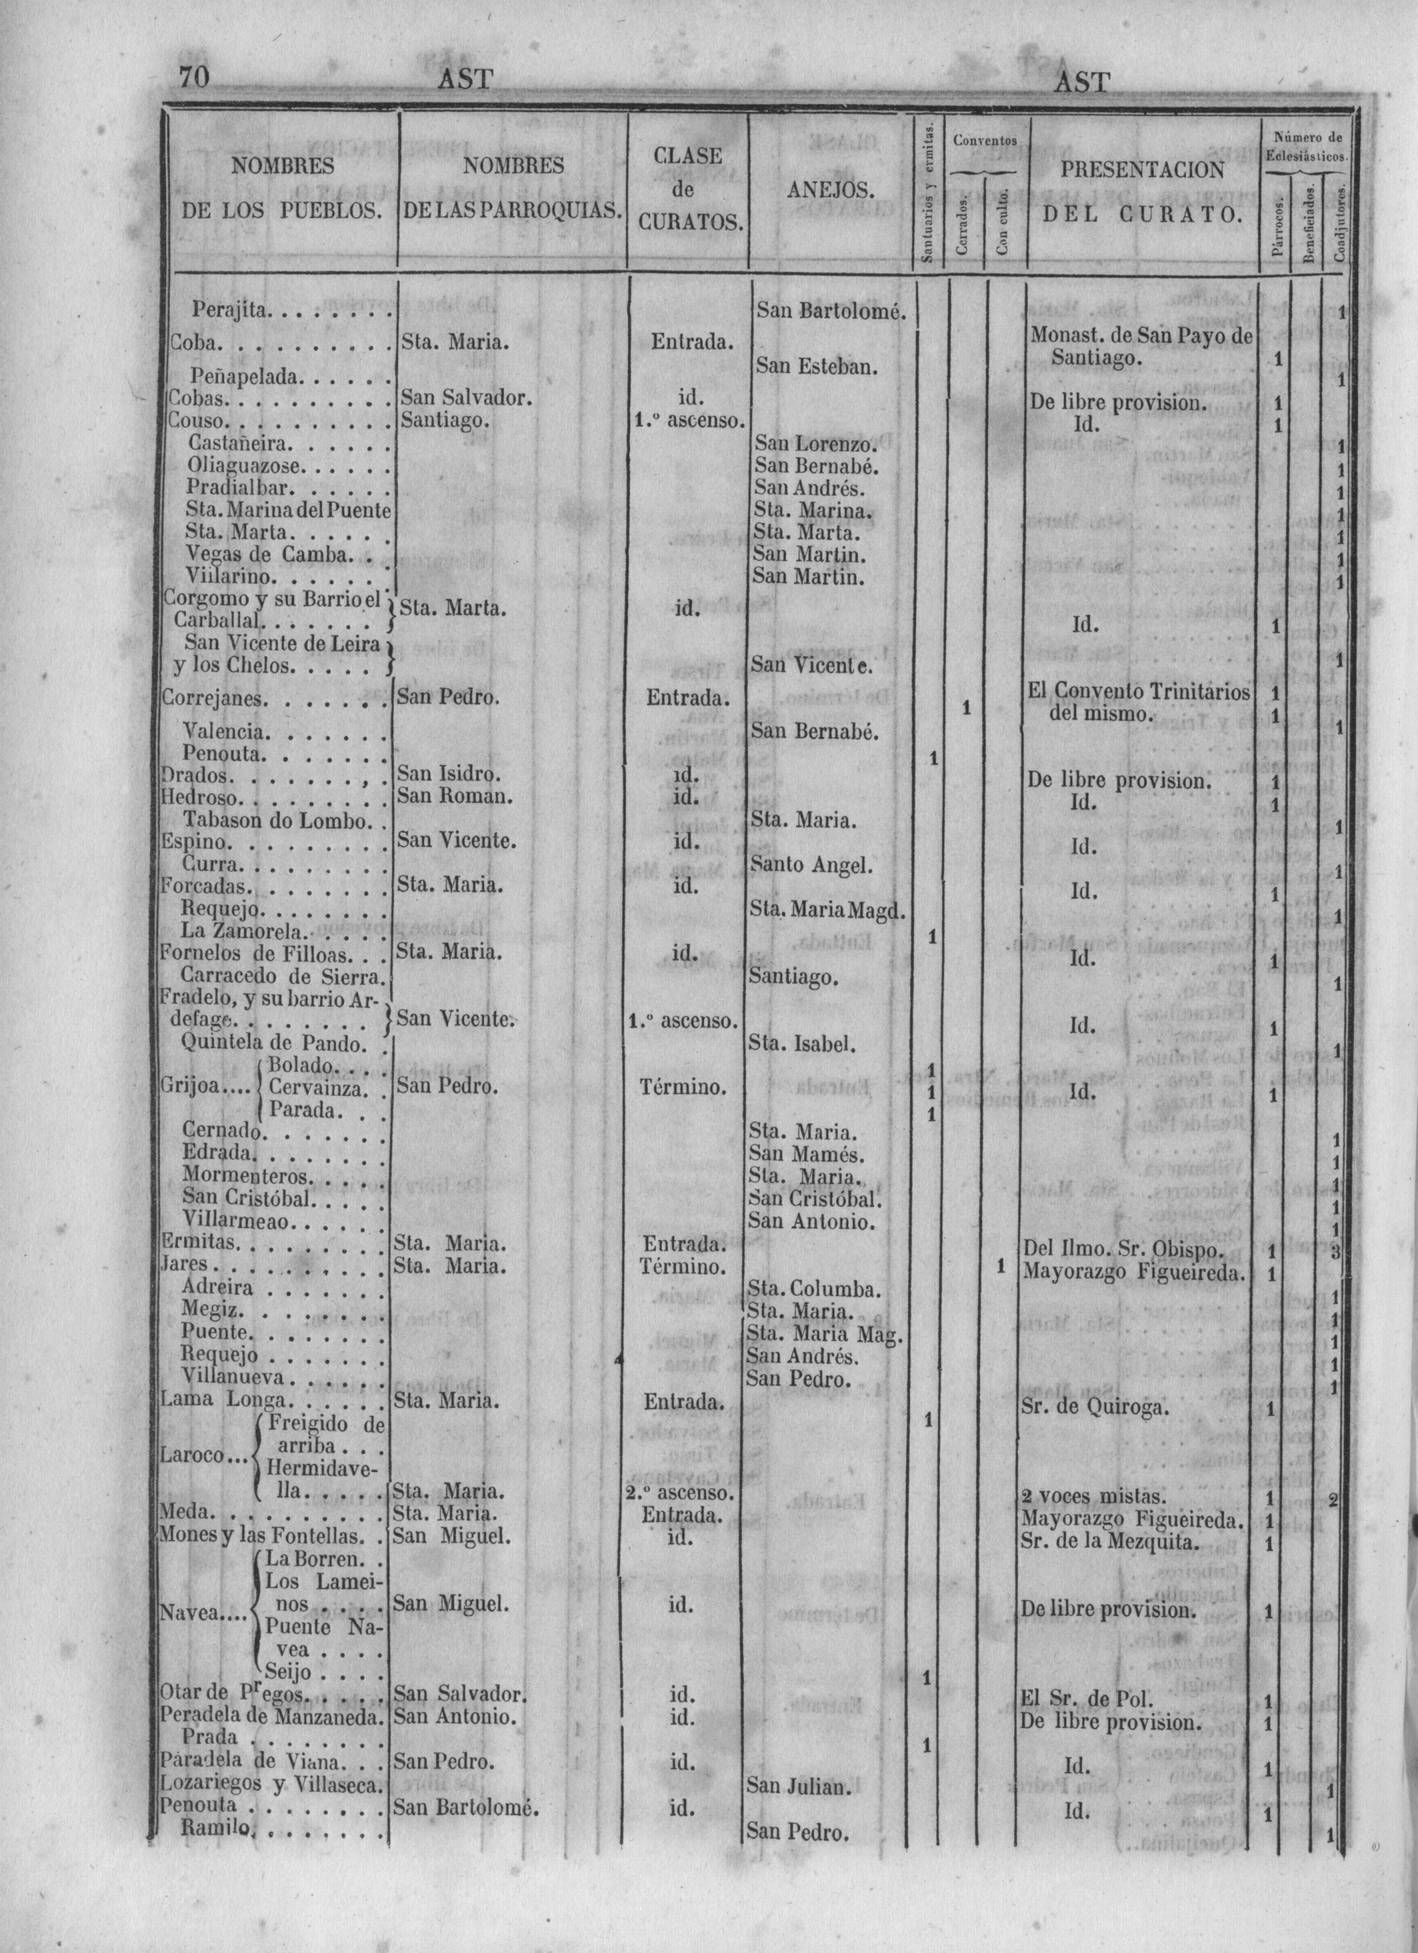 70 AST AST
NOMBRES DE LOS PUEBLOS. NOMBRES DE LAS PARROQUIAS. CLASE de CURATOS. ANEJOS. Santuarios y ermitas. Conventos Cerrados. Con culto. PRESENTACION DEL CURATO. Número de Eclesiásticos. Párrocos. Beneficiados. Coadjutores.
Perajita. . . . . . . . San Bartolomé. 1
Coba. . . . . . . . . . Sta. Maria. Entrada. Monast. de San Payo de
Santiago. 1
Peñapelada. . . . . . San Esteban. 1
Cobas. . . . . . . . . . San Salvador. id. De libre provision. 1
Couso. . . . . . . . . . Santiago. 1.º ascenso. Id. 1
Castañeira. . . . . . San Lorenzo. 1
Oliaguazose. . . . . . San Bernabé. 1
Pradialbar. . . . . . San Andrés. 1
Sta. Marina del Puente Sta. Marina. 1
Sta. Marta. . . . . . Sta. Marta. 1
Vegas de Camba. . . San Martin. 1
Viilarino. . . . . . . San Martin. 1
Corgomo y su Barrio el
Carballal. . . . . . . Sta. Marta. id. Id. 1
San Vicente de Leira
y los Chelos. . . . . San Vicente. 1
Correjanes. . . . . . . San Pedro. Entrada. 1 El Convento Trinitarios 1
del mismo. 1
Valencia. . . . . . . San Bernabé. 1
Penouta. . . . . . . 1
Drados. . . . . . . , . San Isidro. id. De libre provision. 1
Hedroso. . . . . . . . . San Roman. id. Id. 1
Tabason do Lombo. . Sta. Maria. 1
Espino. . . . . . . . . San Vicente. id. Id.
Curra. . . . . . . . . Santo Angel. 1
Forcadas. . . . . . . . Sta. Maria. id. Id. 1
Requejo. . . . . . . . Sta. Maria Magd. 1
La Zamorela. . . . . 1
Fornelos de Filloas. . . Sta. Maria. id. Id. 1
Carracedo de Sierra. Santiago. 1
Fradelo, y su barrio Ar-
defage. . . . . . . . San Vicente. 1.º ascenso. Id. 1
Quintela de Pando. . Sta. Isabel. 1
Bolado. . . . 1
Grijoa.... Cervainza. . San Pedro. Término. 1 Id. 1
Parada. . . 1
Cernado. . . . . . . Sta. Maria. 1
Edrada. . . . . . . . San Mamés. 1
Mormenteros. . . . . Sta. Maria. 1
San Cristóbal. . . . . San Cristóbal. 1
Villarmeao. . . . . . San Antonio. 1
Ermitas. . . . . . . . . Sta. Maria. Entrada. Del Ilmo. Sr. Obispo. 1 3
Jares . . . . . . . . . . Sta. Maria. Término. 1 Mayorazgo Figueireda. 1
Adreira . . . . . . . Sta. Columba. 1
Megiz. . . . . . . . Sta. Maria. 1
Puente. . . . . . . . Sta. Maria Mag. 1
Requejo . . . . . . . San Andrés. 1
Villanueva . . . . . . San Pedro. 1
Lama Longa. . . . . . Sta. Maria. Entrada. Sr. de Quiroga. 1
Freigido de 1
arriba . . .
Laroco... Hermidave-
lla. . . . . Sta. Maria. 2.º ascenso. 2 voces mistas. 1 2
Meda. . . . . . . . . . Sta. Maria. Entrada. Mayorazgo Figueireda. 1
Mones y las Fontellas. . San Miguel. id. Sr. de la Mezquita. 1
La Borren. . .
Los Lamei-
nos . . . . San Miguel. id. De libre provision. 1
Navea.... Puente Na-
vea . . . .
Seijo . . . . 1
Otar de Pregos. . . . . San Salvador. id. El Sr. de Pol. 1
Peradela de Manzaneda. San Antonio. id. De libre provision. 1
Prada . . . . . . . . 1
Paradela de Viana. . . San Pedro. id. Id. 1
Lozariegos y Villaseca. San Julian. 1
Penouta . . . . . . . . San Bartolomé. id. Id. 1
Ramilo. . . . . . . . San Pedro. 1